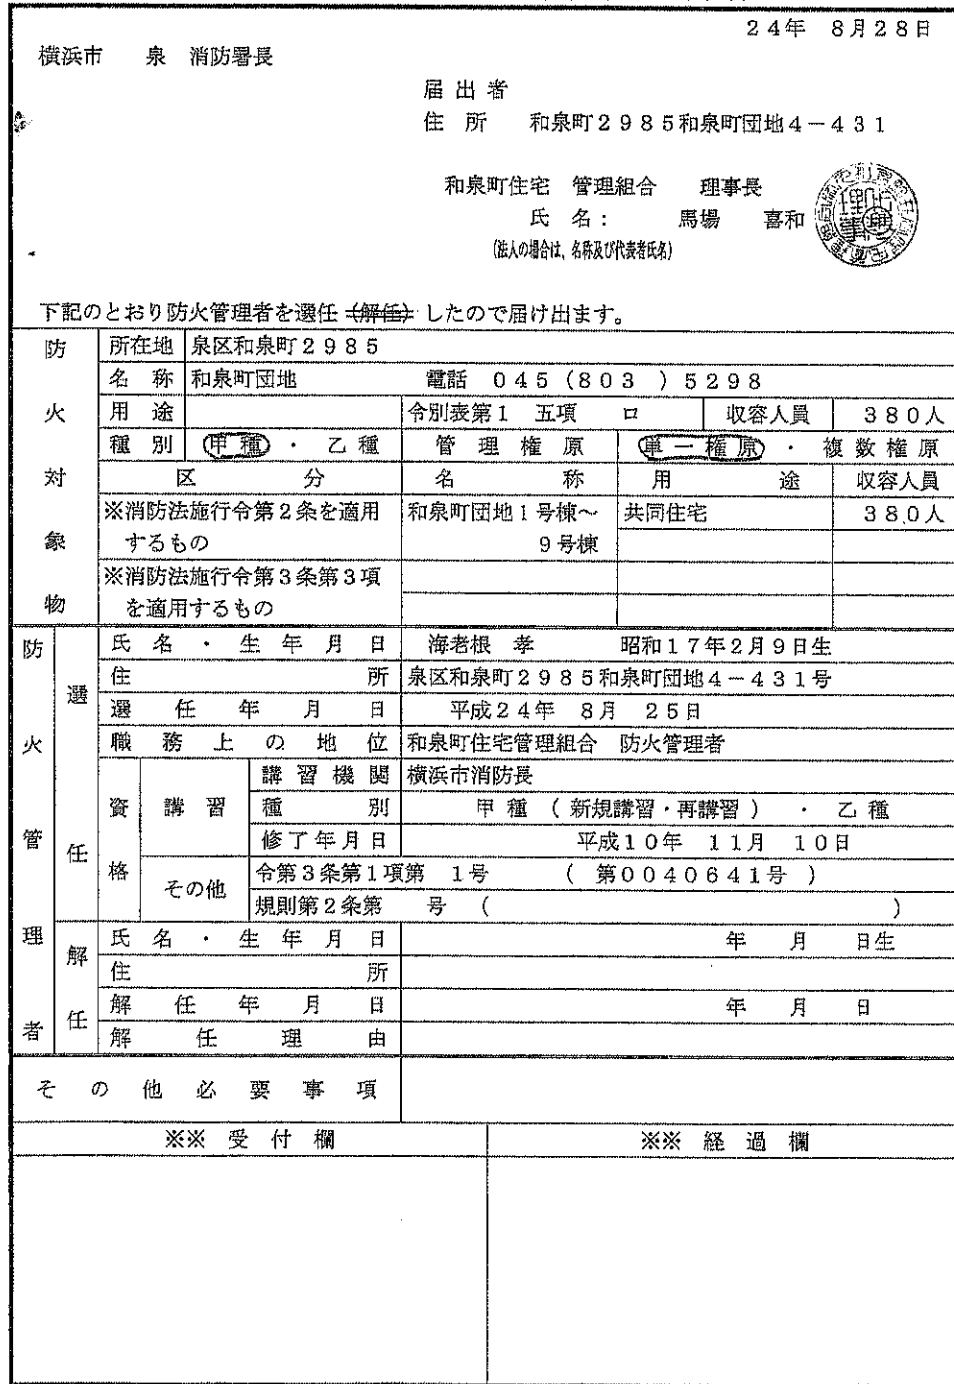 24年 8月28日
横浜市 泉 消防署長
届出者
住所 和泉町2985和泉町団地4－431
和泉町住宅 管理組合 理事長
氏名： 馬場 喜和
(法人の場合は、名称及び代表者氏名)
下記のとおり防火管理者を選任（解任）したので届け出ます。
防火対象物
所在地 泉区和泉町2985
名称 和泉町団地 電話 045（803 ）5298
用途 令別表第1 五項 ロ 収容人員 380人
種別 甲種 ・ 乙種 管理権原 単一権原 ・ 複数権原
区分 名称 用途 収容人員
※消防法施行令第2条を適用 和泉町団地1号棟～ 共同住宅 380人
するもの 9号棟
※消防法施行令第3条第3項
を適用するもの
防火管理者
選任
氏名・生年月日 海老根 孝 昭和17年2月9日生
住所 泉区和泉町2985和泉町団地4－431号
選任年月日 平成24年 8月 25日
職務上の地位 和泉町住宅管理組合 防火管理者
資格
講習
講習機関 横浜市消防長
種別 甲種 （新規講習・再講習） ・ 乙種
修了年月日 平成10年 11月 10日
その他
令第3条第1項第 1号 （ 第0040641号 ）
規則第2条第 号 （ ）
解任
氏名・生年月日 年 月 日生
住所
解任年月日 年 月 日
解任理由
その他必要事項
※※ 受付欄 ※※ 経過欄